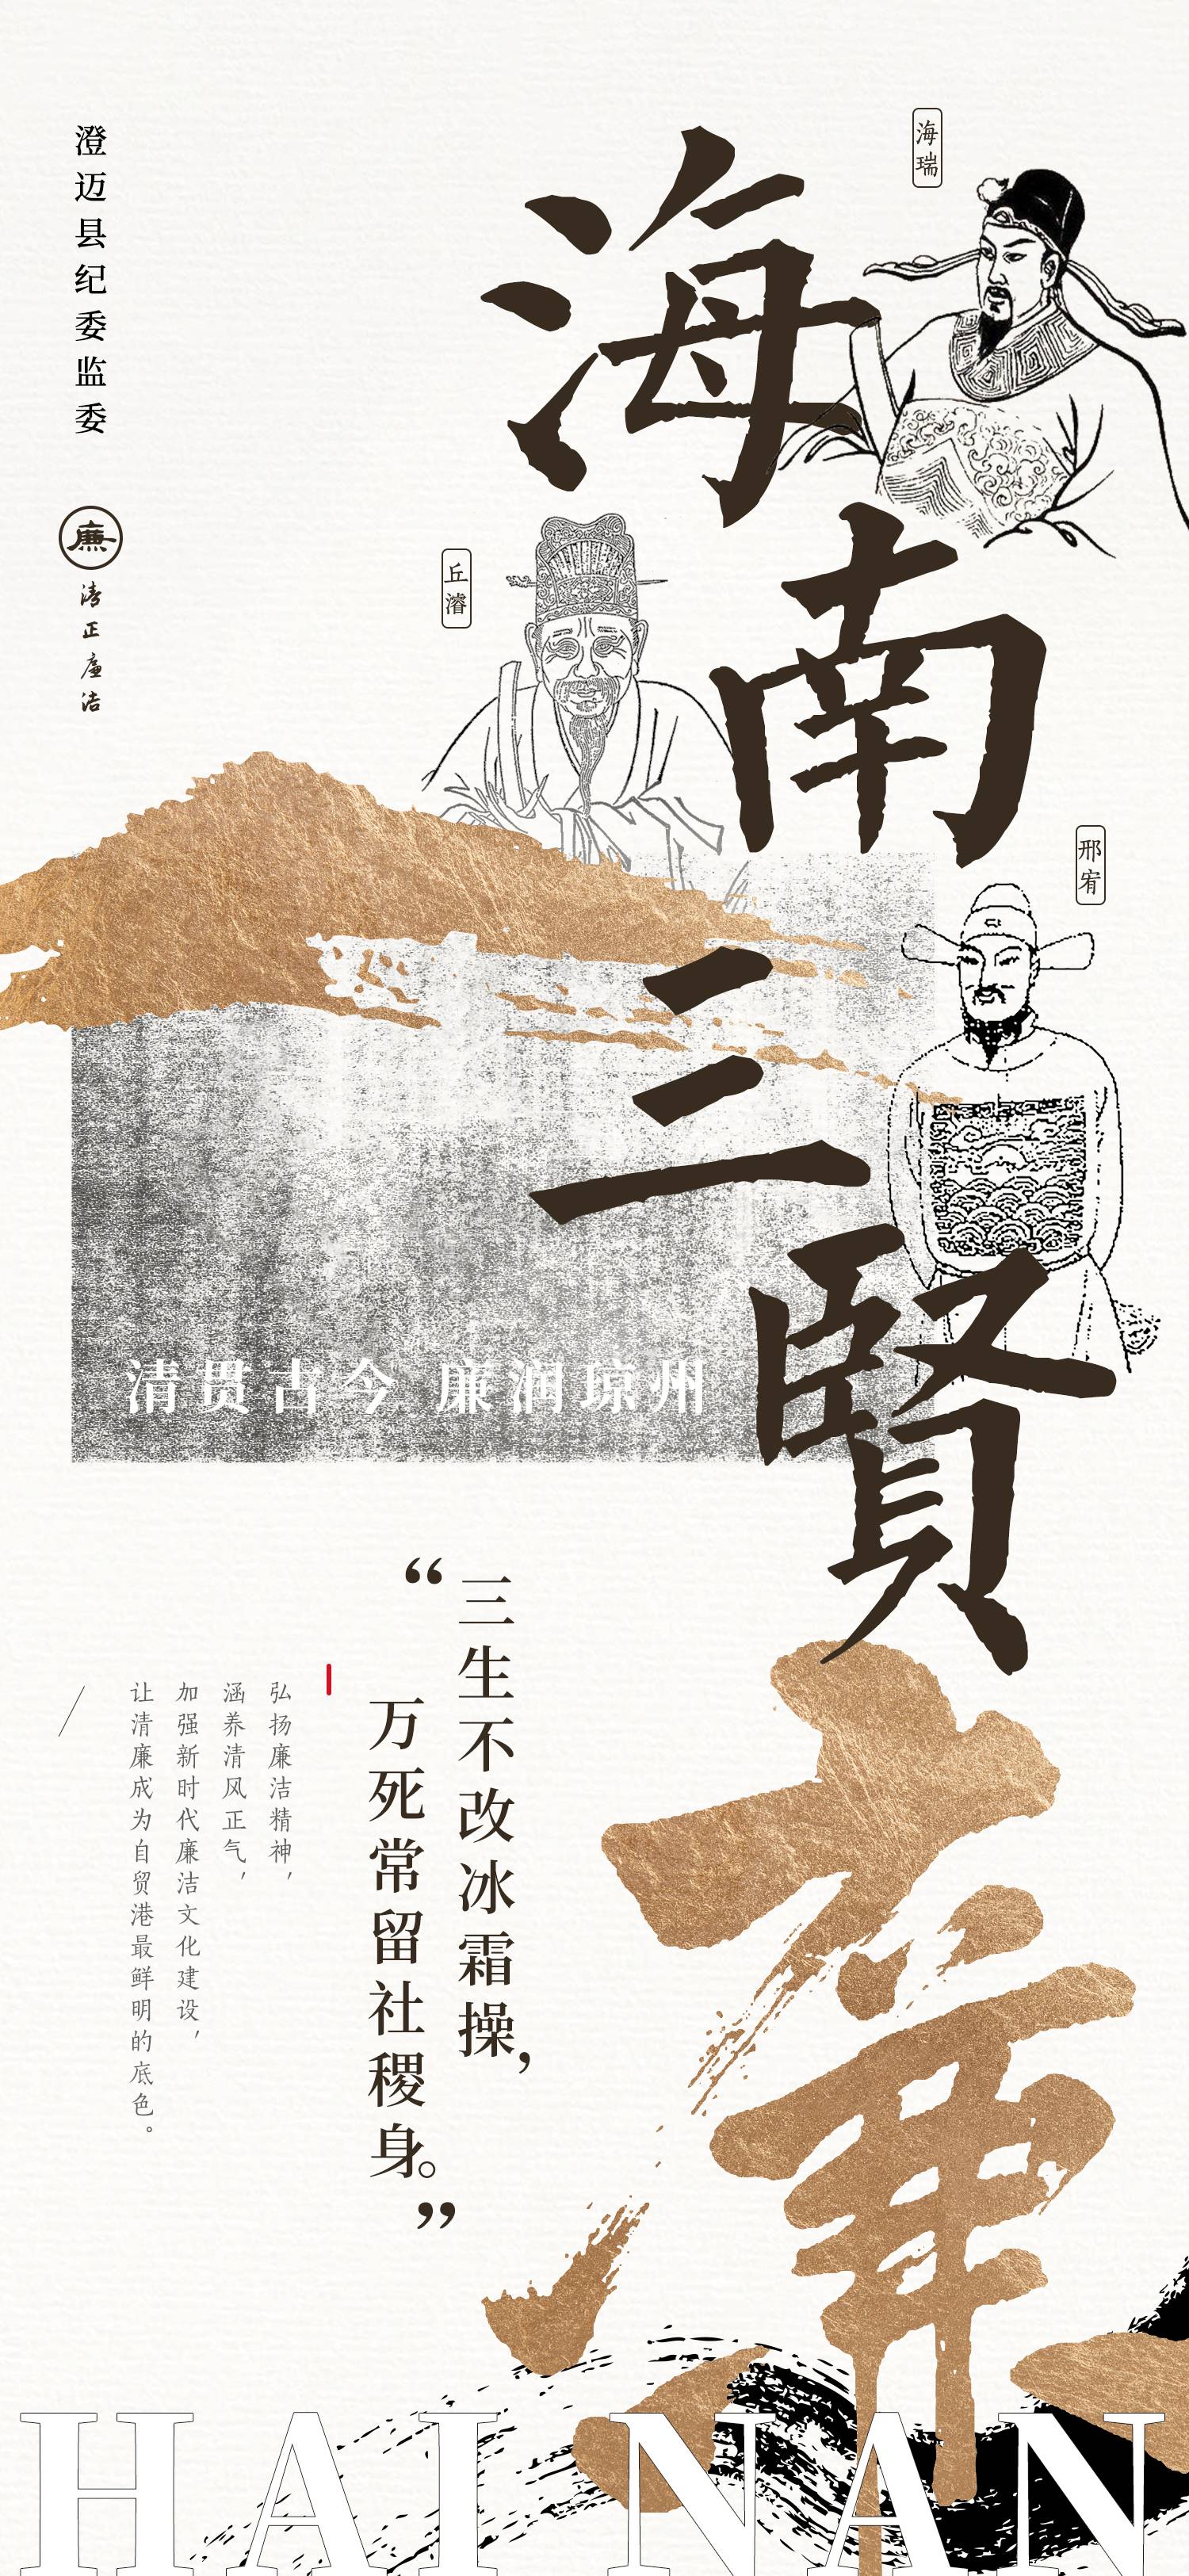 澄迈县纪委监委
廉
清正廉洁
海南三賢
海瑞
丘濬
邢宥
清贯古今 廉润琼州
“三生不改冰霜操，
万死常留社稷身。”
弘扬廉洁精神，
涵养清风正气，
加强新时代廉洁文化建设，
让清廉成为自贸港最鲜明的底色。
廉
HAI NAN